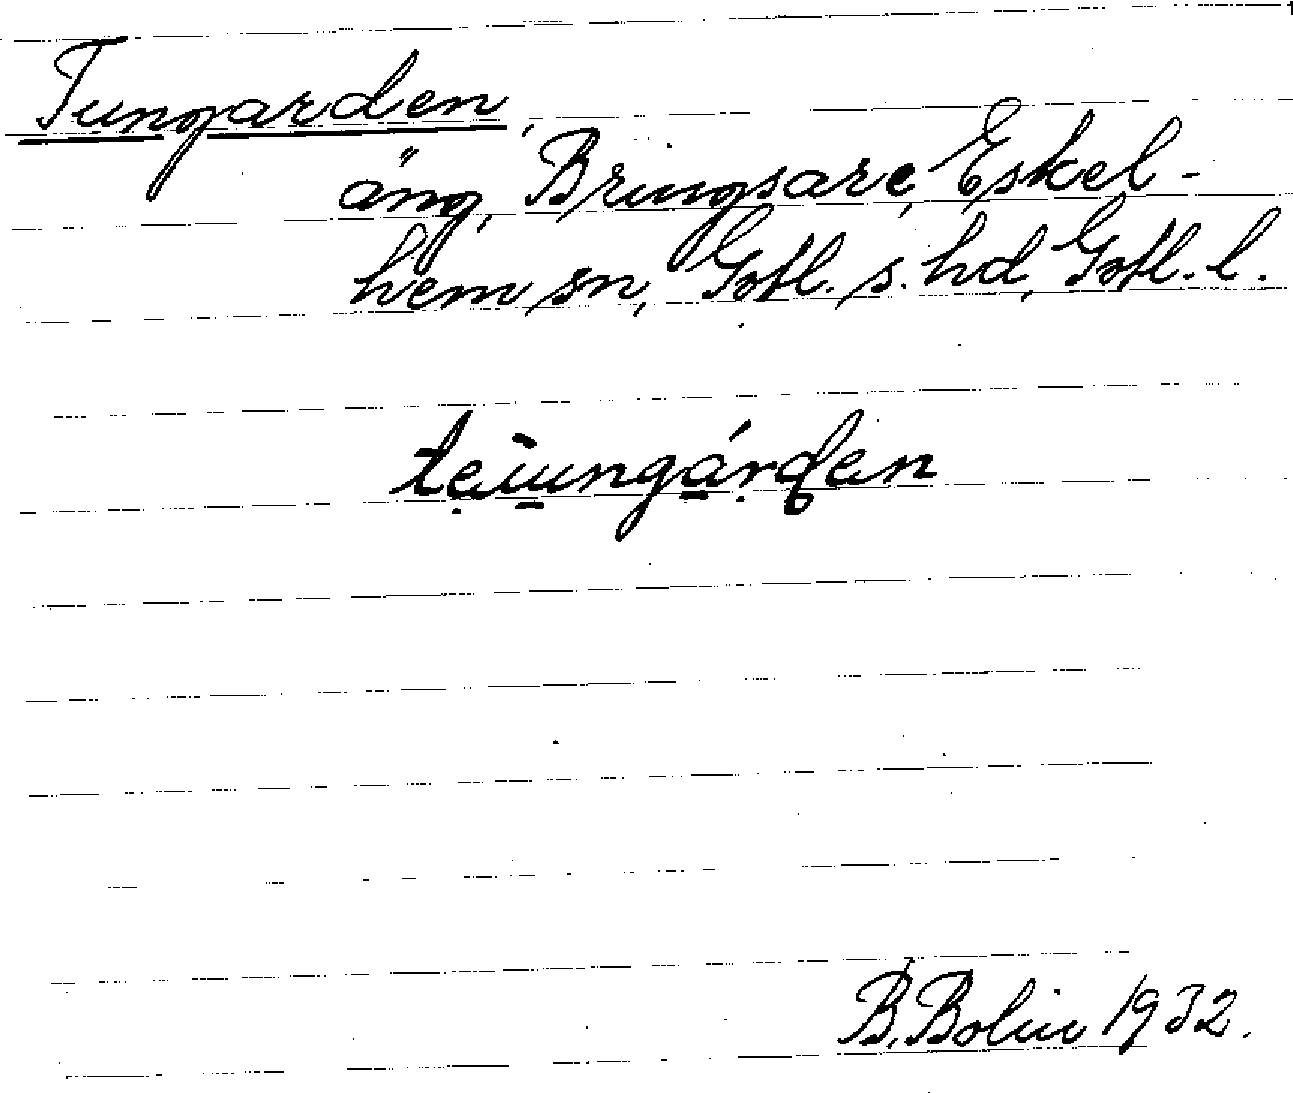 Tungarden,
äng, Bringsare, Eskel-
hem sn, Gotl. s. hd, Gotl. l.
B. Bolin 1932.